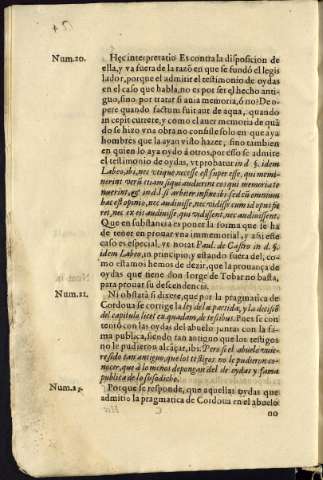 Num.20. Hęc interpretatio Es contra la disposicion de
ella, y va fuera de la razõ en que se fundó el legis
lador, porque el admitir el testimonio de oydas
en el caso que habla, no es por ser el hecho anti-
guo, sino por tratar si aura memoria, ó no: De o-
pere quando factum fuit aut de aqua, quando
in cepit currere, y como el auer memoria de quã
do se hizo vna obra no consiste solo en que aya
hombres que la ayan visto hazer, sino tambien
en quien lo aya oydo á otros, por esso se admite
el testimonio de oydas, vt probatur in d. §. idem
Labeo, ibi, nec vtique necesse est super esse, qui memi-
nerint verũ etiam si qui audierint eos qui memoria te
nuerint, & in d. l. si arbiter
hæc est opinio, nec audiuisse, nec vidisse cum id opus fie
ret, nec ex eis audiuisse, qui vidissent, nec audiuissent.
Que en substancia es poner la forma que se ha
de tener en prouar vna immemorial, y aũ este
caso es especial, vt notat Paul. de Castro in d. §.
idem Labeo, in principio, y estando fuera del, co-
mo estamos hemos de dezir, que la prouança de
oydas que tiene don Iorge de Tobar no basta,
para prouar su descendencia.
Num.21. Ni obstará si dixere, que por la pragmatica de
Cordoua se corrige la ley de la partida, y la decisiõ
del capitulo licet ex quadam, de testibus. Pues se con
tentó con las oydas del abuelo juntas con la fa-
ma publica, siendo tan antiguo que los testigos
no le pudieron alcãçar, ibi: Pero si el abuelo
tan antiguo, que los testigos no le pudieron co-
nocer, que á lo menos depongan del de oydas y fama
publica de lo susodicho.
Porque se responde, que aquellas oydas que
admitio la pragmatica de Cordoua en el abuelo
no